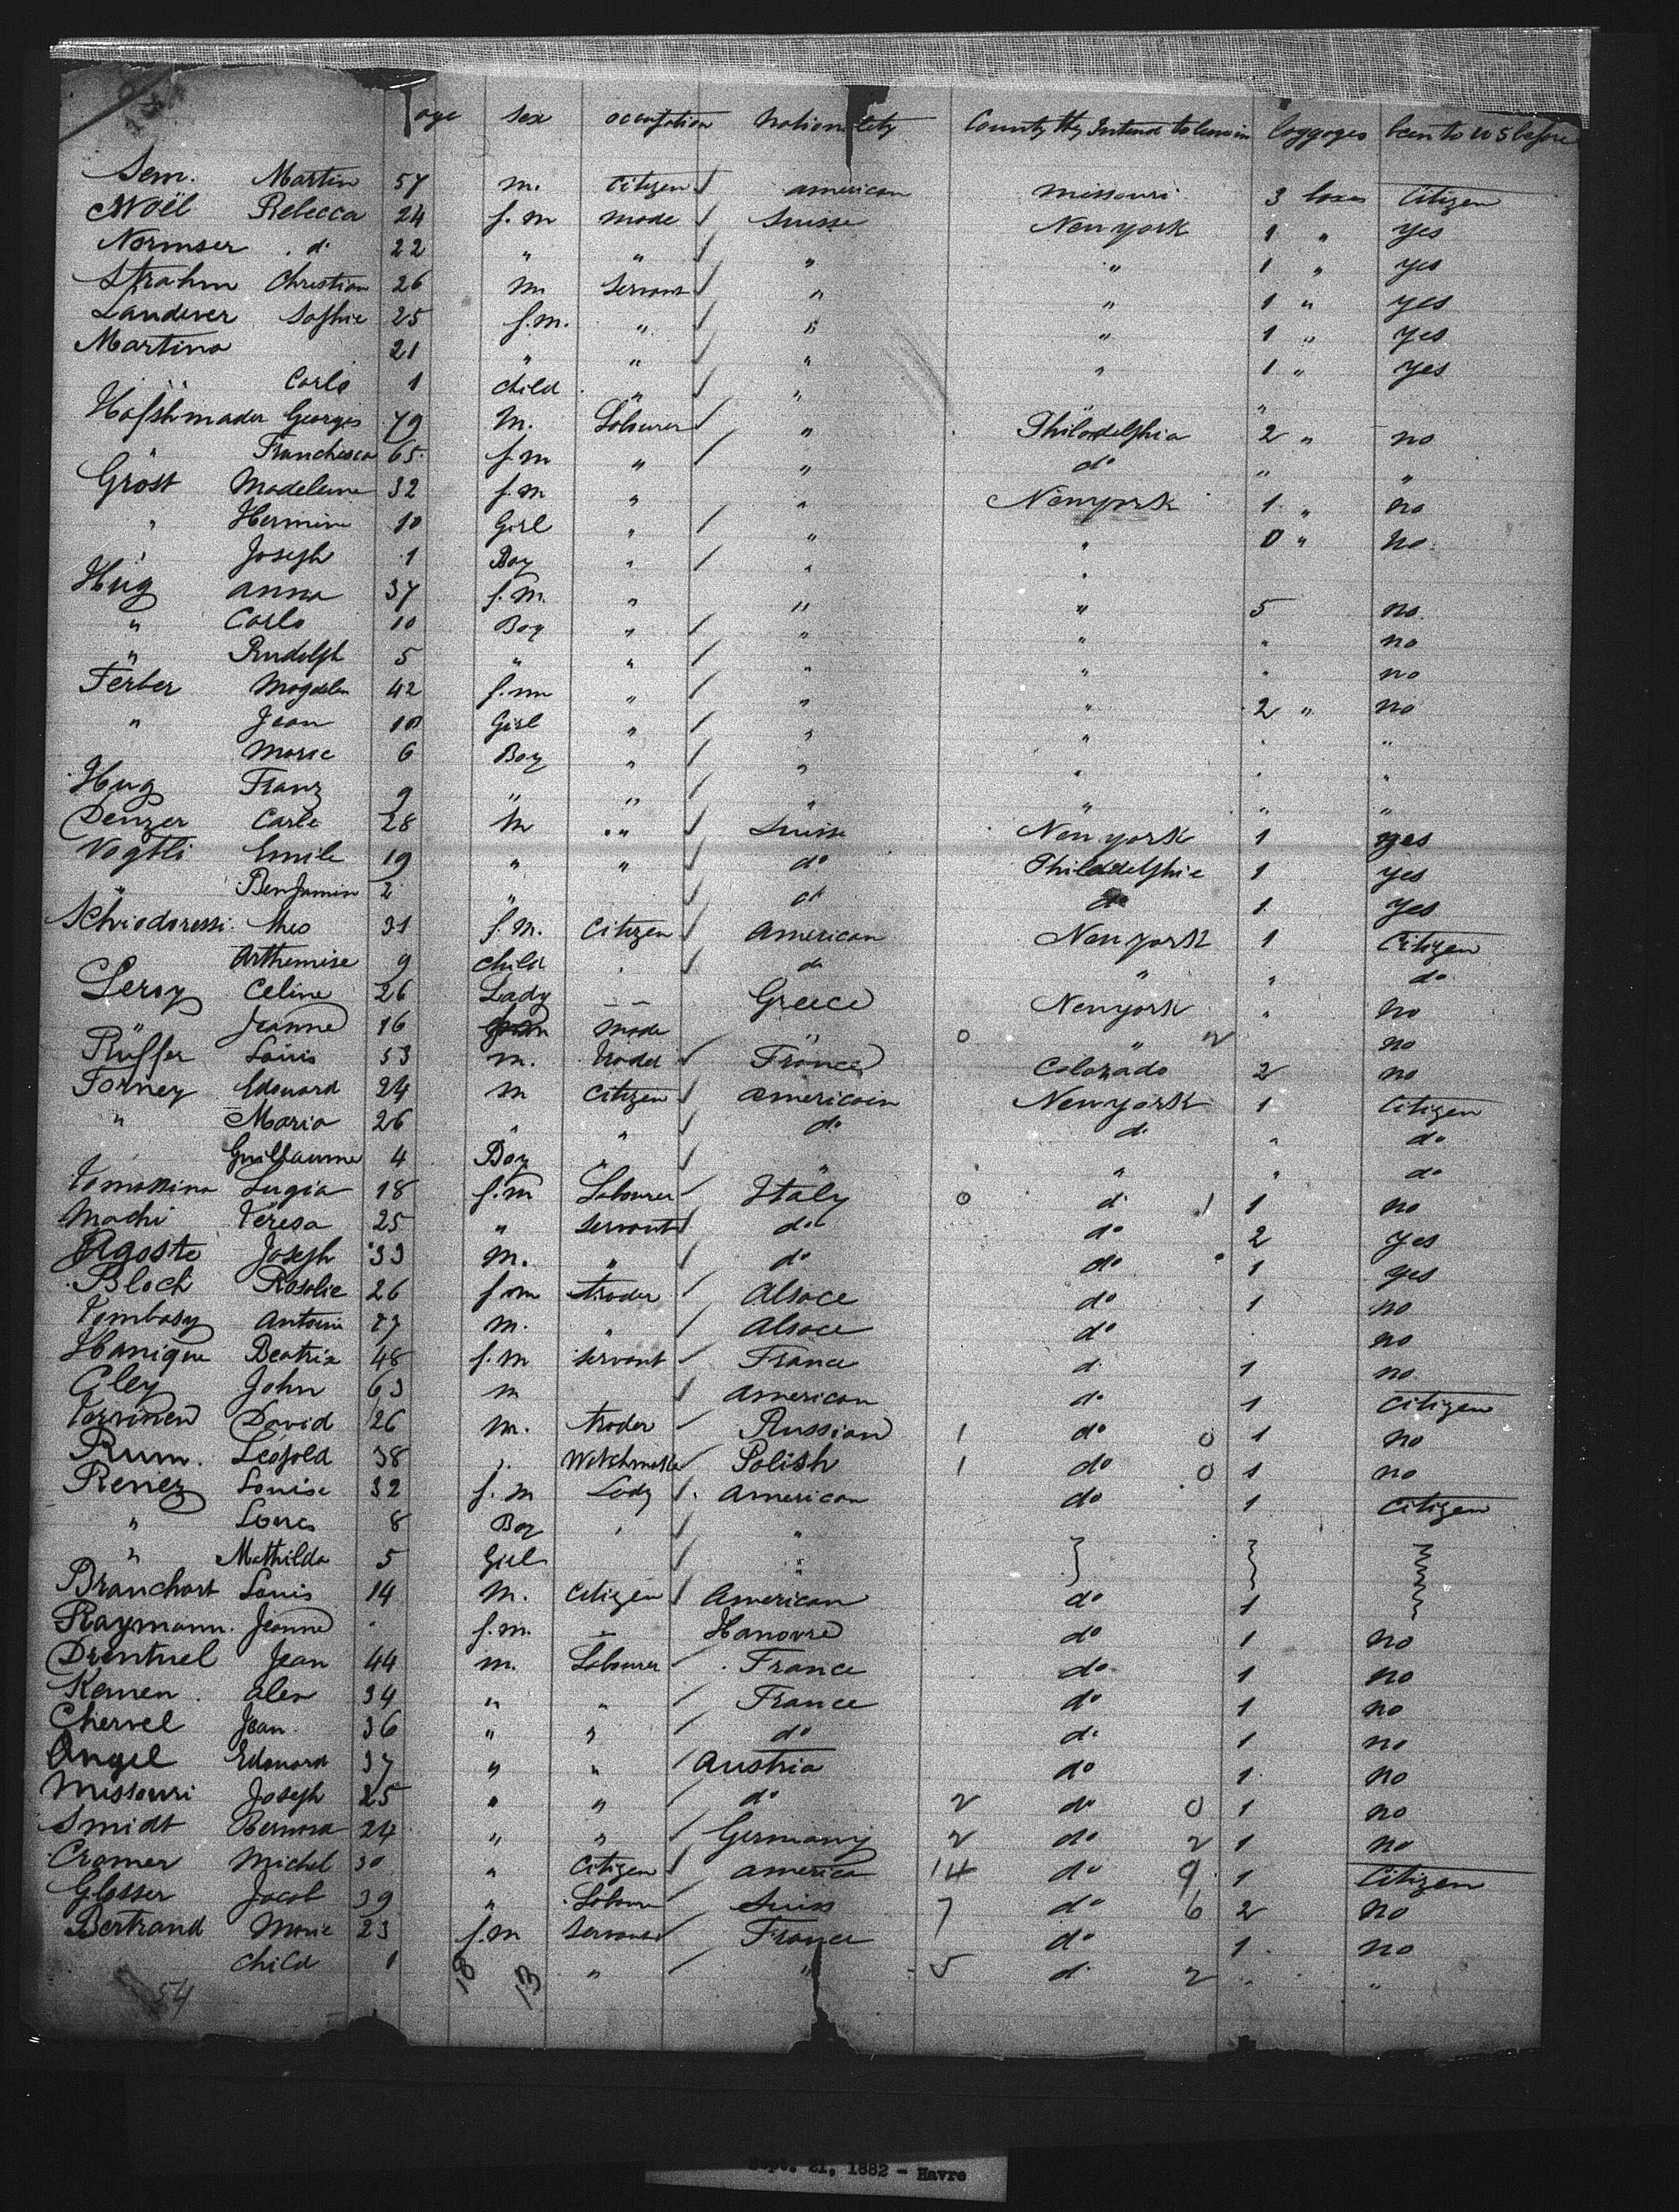 age sex occupation Nationality County they Intend to live in loggages been to U S before
Sem. Martin 57 m. Citizen american missouri 3 boxes Citizen
Noël Rebecca 24 f.m mode Suisse New york 1 " yes
Normser . d° 22 " " " " 1 " yes
Strahm Christian 26 m Servant " " 1 " yes
Landerer Sophie 25 f.m. " " " 1 " yes
Martina 21 " " " " 1 " yes
Carlo 1 child " " " "
Hofshmader Georges 79 M. Labourer " Philadelphia 2 " no
" Franchisca 65 f.m " " d° " "
Gröst Madeleine 32 f.m " " New york 1 " no
" Hermine 10 Girl " " " 0 " no
" Joseph 1 Boy " " "
Hug anna 37 f.m. " " " 5 no
" Carlo 10 Boy " " " " no
" Rudolph 5 " " " " " no
Ferber Magdalen 42 f.m " " " 2 " no
" Jean 10 Girl " " " " "
Marie 6 Boy " " " " "
Hug Franz 9 " " " " " "
Denzer Carle 28 m " Suisse New york 1 yes
Vogtli Emile 19 " " d° Philadelphie 1 yes
" Benjamin 2 " d° d° 1 yes
Theo 31 f.m. Citizen American New york 1 Citizen
Arthemise 9 child " d° " " d°
Leroy Celine 26 Lady — — Greece New york " no
" Jeanne 16 mode " 0 " 2 no
Rüffer Louis 53 m. trader France Colorado 2 no
Forney Edouard 24 m Citizen americain New york 1 Citizen
" Maria 26 " " d° d° " d°
Guillaume 4 Boy " " " " d°
Tomassina Lugia 18 f.m Labourer Italy 0 d° 1 1 no
Machi Teresa 25 " servant d° d° 2 yes
Agoste Joseph 33 M. " d° d° 1 yes
Bloch Rosalie 26 f m trader Alsace d° 1 no
Tombasy Antoine 27 m. " Alsace d° . no
Hanique Beatrix 48 f.m servant France d° 1 no
Cley John 63 m American d° 1 Citizen
Tervinen David 26 m. trader Russian 1 d° 0 1 no
Rum. Leopold 38 ". Watchmaker Polish 1 d° 0 1 no
Renez Louise 32 f.m Lady American d° 1 Citizen
" Louis 8 Boy " "
" Mathilda 5 Girl "
Branchart Louis 14 M. Citizen American d° 1
Raymann. Jeanne f.m. — Hanovre d° 1 no
Drentuel Jean 44 m. Labourer France d° 1 no
Kemen. alex 34 " " France d° 1 no
Chervel Jean 36 " " d° d° 1 no
Angel Edouard 37 " " Austria d° 1 no
Missouri Joseph 25 " " d° 2 d° 0 1 no
Smidt Bernard 24 " " Germany 2 d° 2 1 no
Cramer Michel 30 " Citizen america 14 d° 9 1 Citizen
Glosser Jacob 39 " Labourer Suiss 7 d° 6 2 no
Bertrand Marie 23 f.m Servant France d° 1 no
child 1 18 13 " " 5 d° 2 " "
54
Sept. 21, 1882 - Havre